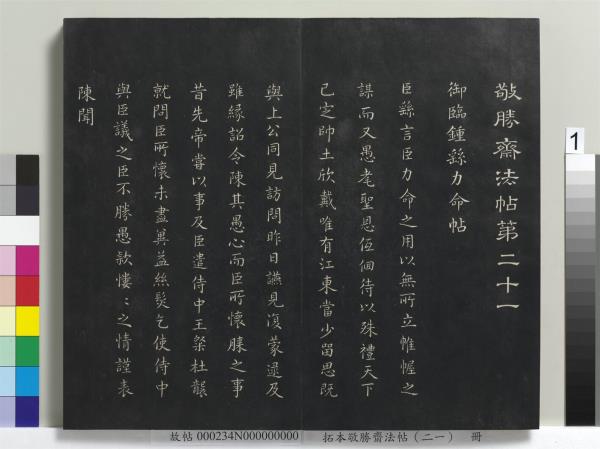 敬勝齋法帖第二十一
御臨鍾繇力命帖
臣繇言臣力命之用以無所立帷幄之
謀而又愚耄聖恩低佪待以殊禮天下
已定帥土欣戴唯有江東當少留思既
與上公同見訪問昨日讌見復蒙逮及
雖緣詔令陳其愚心而臣所懷未盡之事
昔先帝嘗以事及臣遣侍中王粲杜襲
就問臣所懷未盡冀益絲髮乞使侍中
與臣議之臣不勝愚款慺慺之情謹表
陳聞
1
故帖 000234N000000000 拓本敬勝齋法帖(二一) 冊